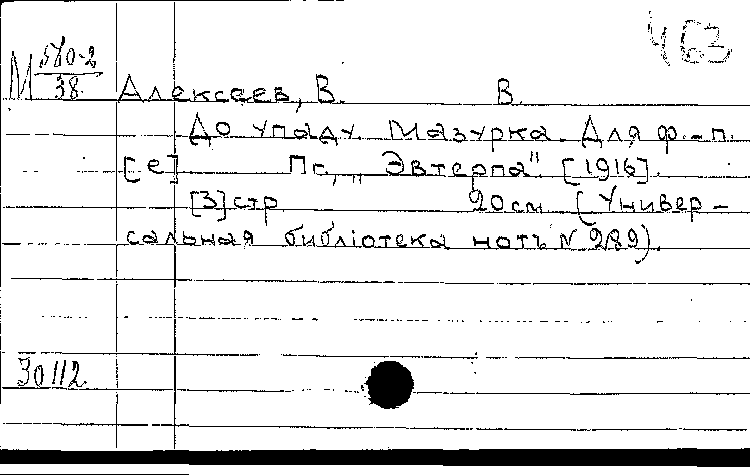 463
М 580-2
38
Алексеев, В. В.
До упаду. Мазурка. Для ф.-п.
[е] Пг., „Эвтерпа". [1916].
[3]стр 20см (Универ-
сальная библіотека нотъ № 289).
30112